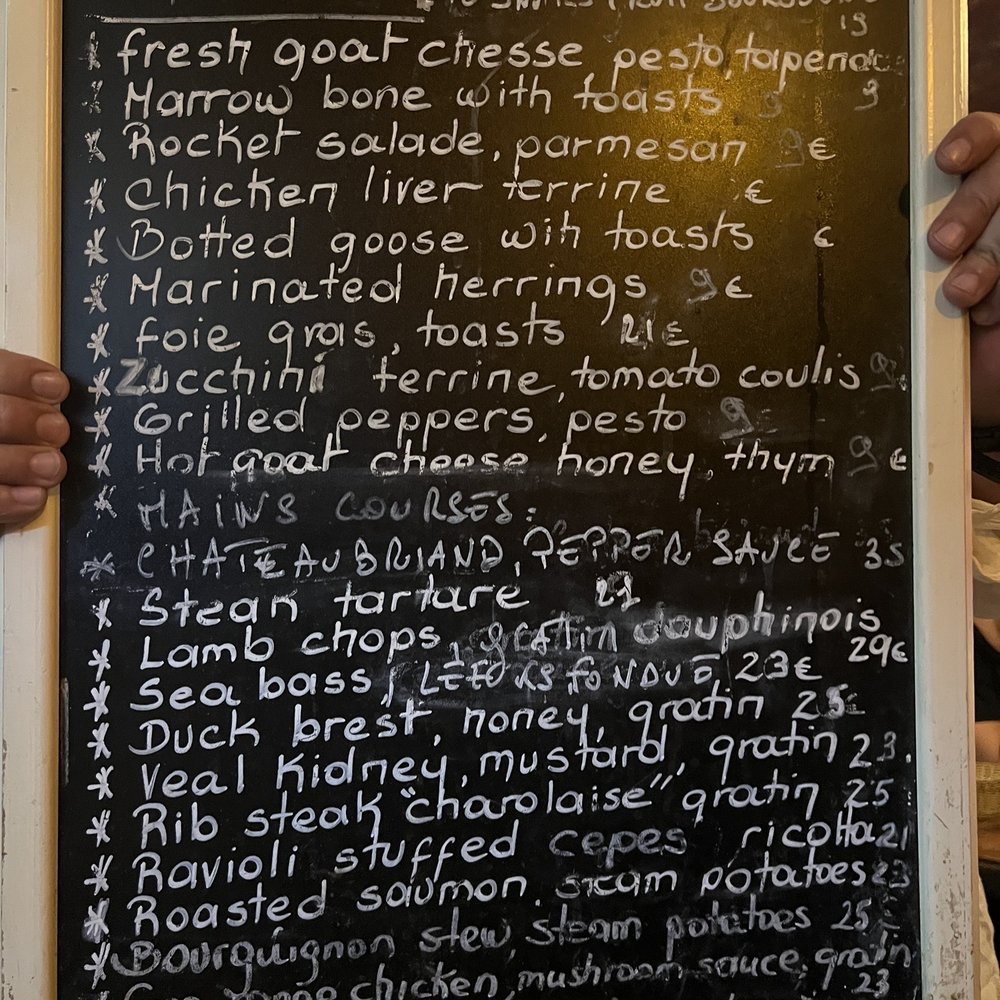 * 10 SNAILS FROM
19
* fresh goat chesse pesto, tapenade
* Marrow bone with toasts 9
* Rocket salade, parmesan 9€
* Chicken liver terrine €
* Botted goose wih toasts €
* Marinated herrings 9€
* foie gras, toasts 21€
* Zucchini terrine, tomato coulis 9
* Grilled peppers, pesto 9
* Hot goat cheese honey, thym 9€
* MAINS COURSES:
* CHATEAUBRIAND, PEPPER SAUCE 35
* Steak tartare 21
* Lamb chops, gratin dauphinois 29€
* Sea bass, LEEKS FONDUE, 23€
* Duck brest, honey, gratin 25
* Veal kidney, mustard, gratin 23.
* Rib steak "charolaise" gratin 25
* Ravioli stuffed cepes ricotta 21
* Roasted saumon, steam potatoes 23
* Bourguignon stew, steam potatoes 25€
chicken, mushroom sauce, gratin
23